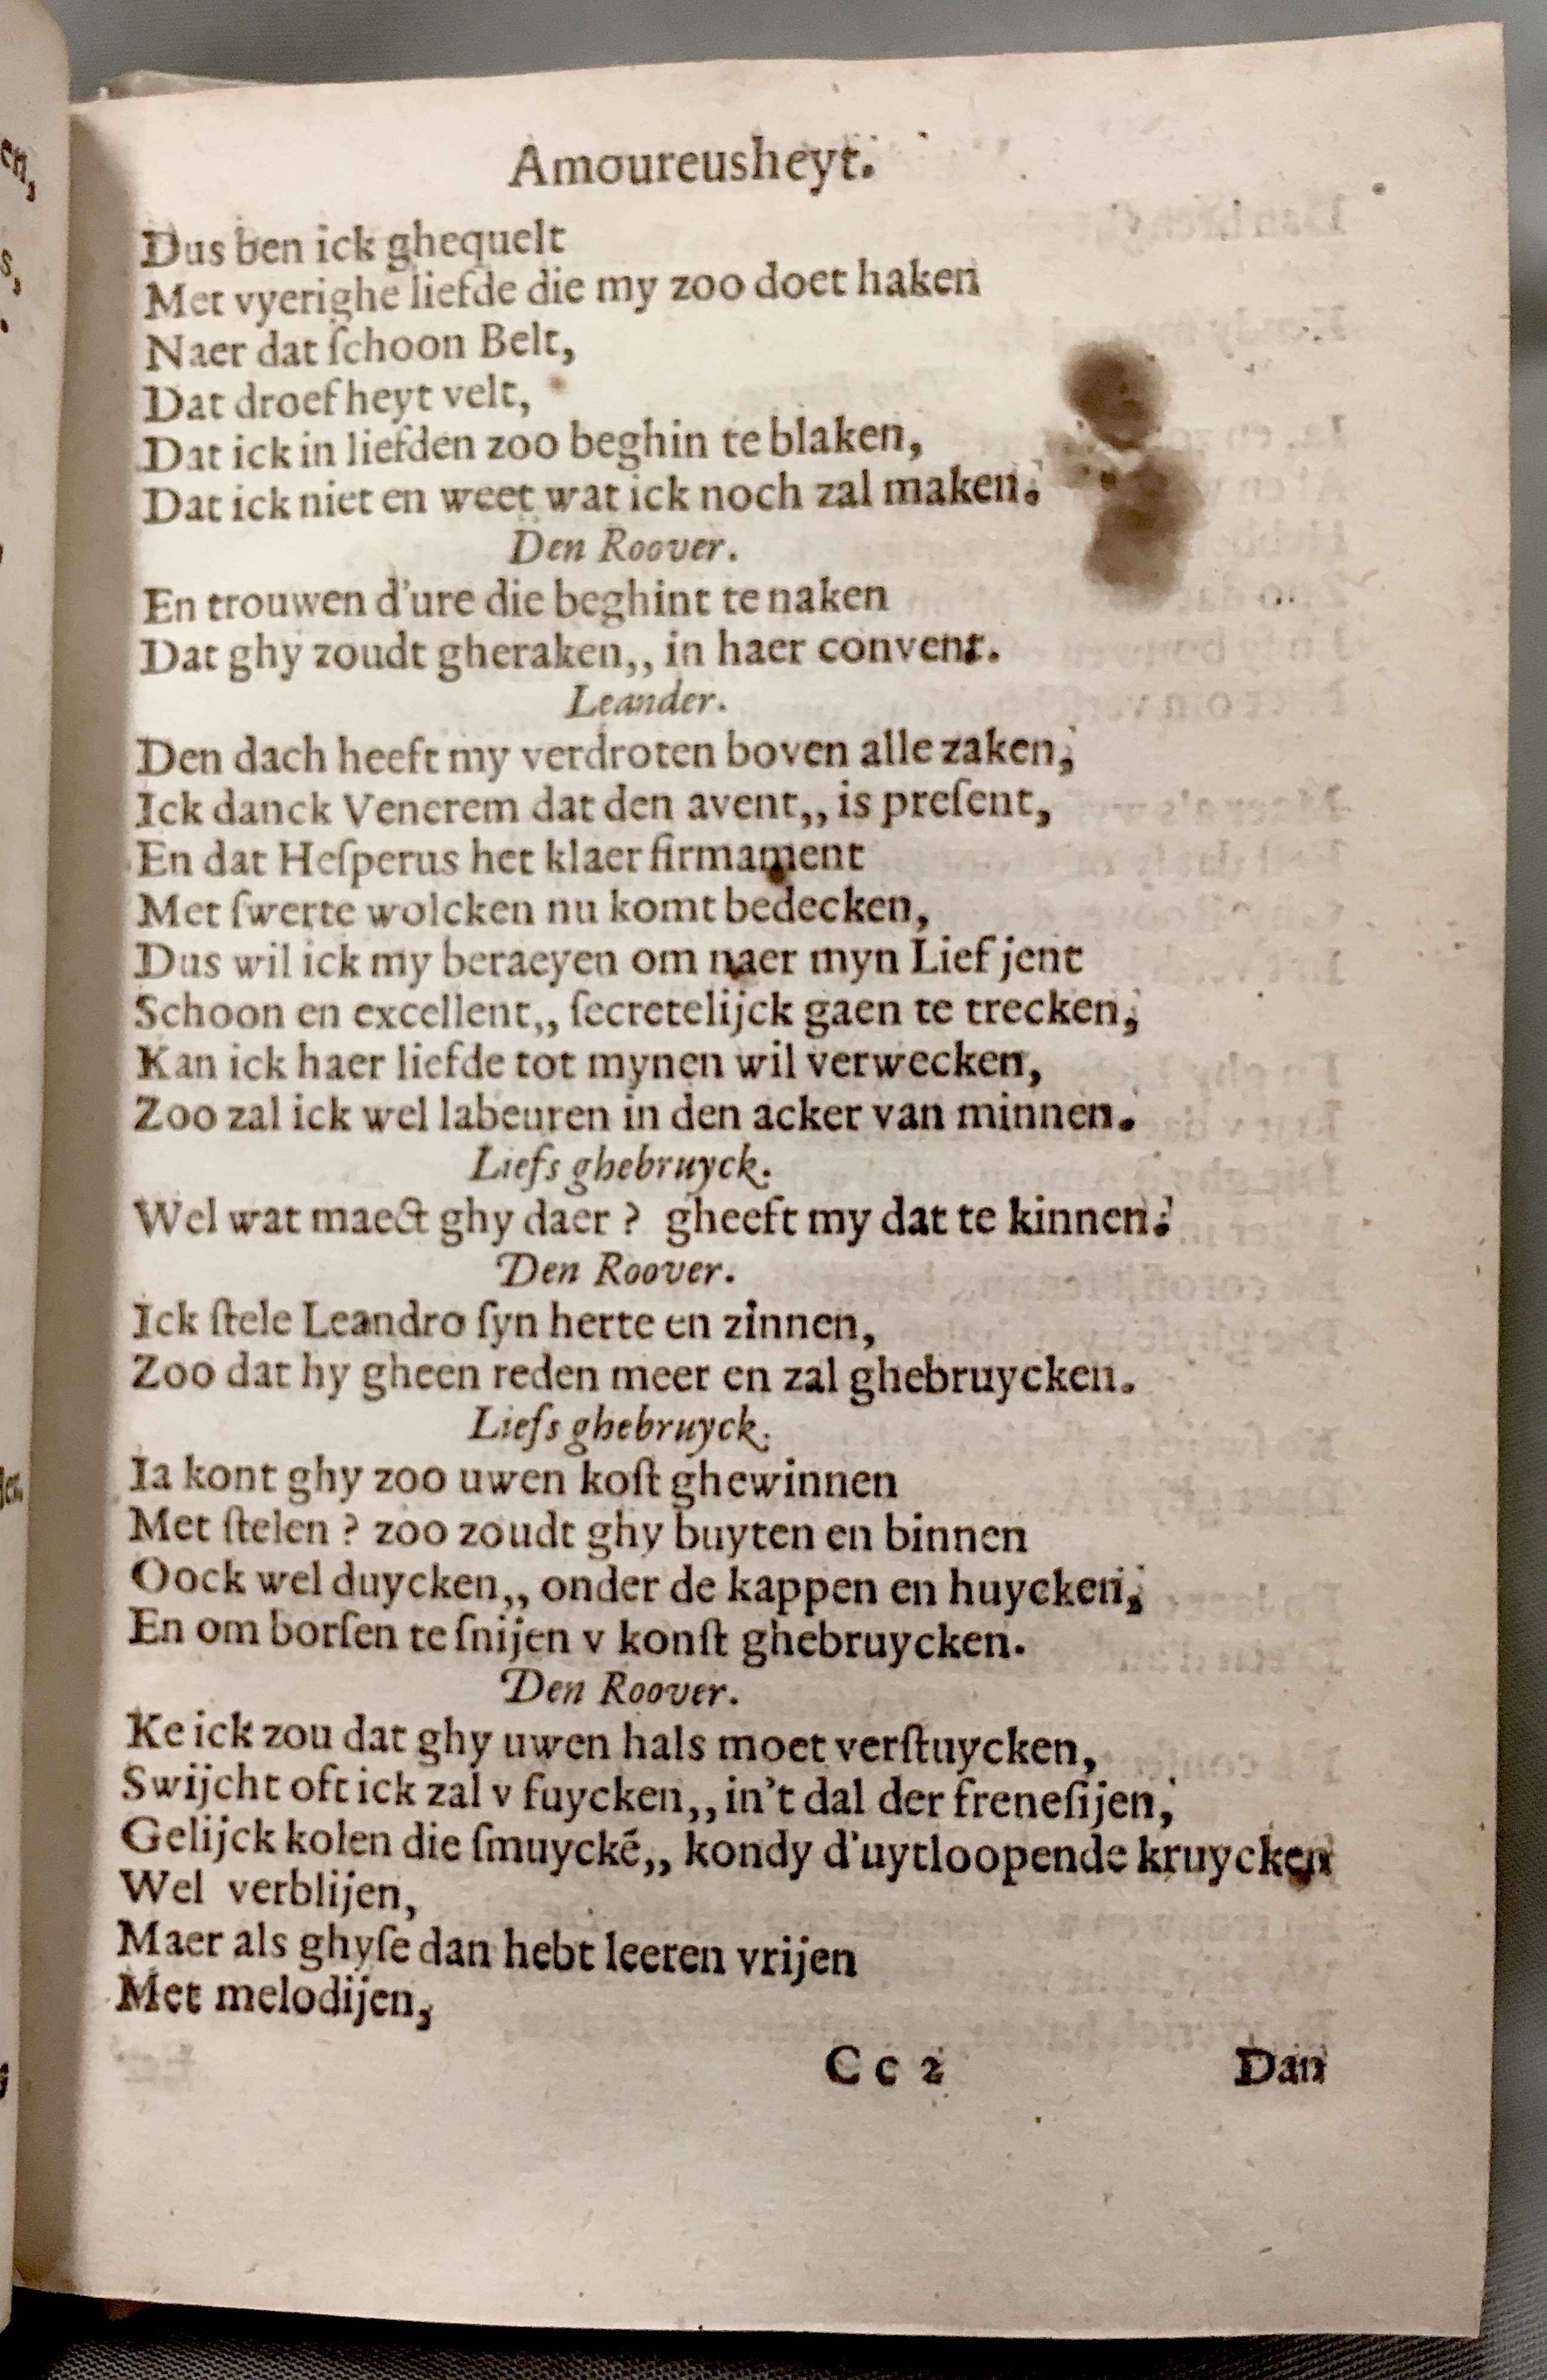 Amoureusheyt.
Dus ben ick ghequelt
Met vyerighe liefde die my zoo doet haken
Naer dat ſchoon Belt,
Dat droefheyt velt,
Dat ick in liefden zoo beghin te blaken,
Dat ick niet en weet wat ick noch zal maken.
Den Roover.
En trouwen d'ure die beghint te naken
Dat ghy zoudt gheraken,, in haer convent.
Leander.
Den dach heeft my verdroten boven alle zaken,
Ick danck Venerem dat den avent,, is preſent,
En dat Heſperus het klaer firmament
Met ſwerte wolcken nu komt bedecken,
Dus wil ick my beraeyen om naer myn Lief jent
Schoon en excellent,, ſecretelijck gaen te trecken,
Kan ick haer liefde tot mynen wil verwecken,
Zoo zal ick wel labeuren in den acker van minnen.
Liefs ghebruyck.
Wel wat maect ghy daer ? gheeft my dat te kinnen.
Den Roover.
Ick ſtele Leandro ſyn herte en zinnen,
Zoo dat hy gheen reden meer en zal ghebruycken.
Liefs ghebruyck.
Ia kont ghy zoo uwen koſt ghewinnen
Met ſtelen ? zoo zoudt ghy buyten en binnen
Oock wel duycken,, onder de kappen en huycken,
En om borſen te ſnijen v konſt ghebruycken.
Den Roover.
Ke ick zou dat ghy uwen hals moet verſtuycken,
Swijcht oft ick zal v fuycken,, in't dal der freneſijen,
Gelijck kolen die ſmuyckē,, kondy d'uytloopende kruycken
Wel verblijen,
Maer als ghyſe dan hebt leeren vrijen
Met melodijen,
C c 2 Dan